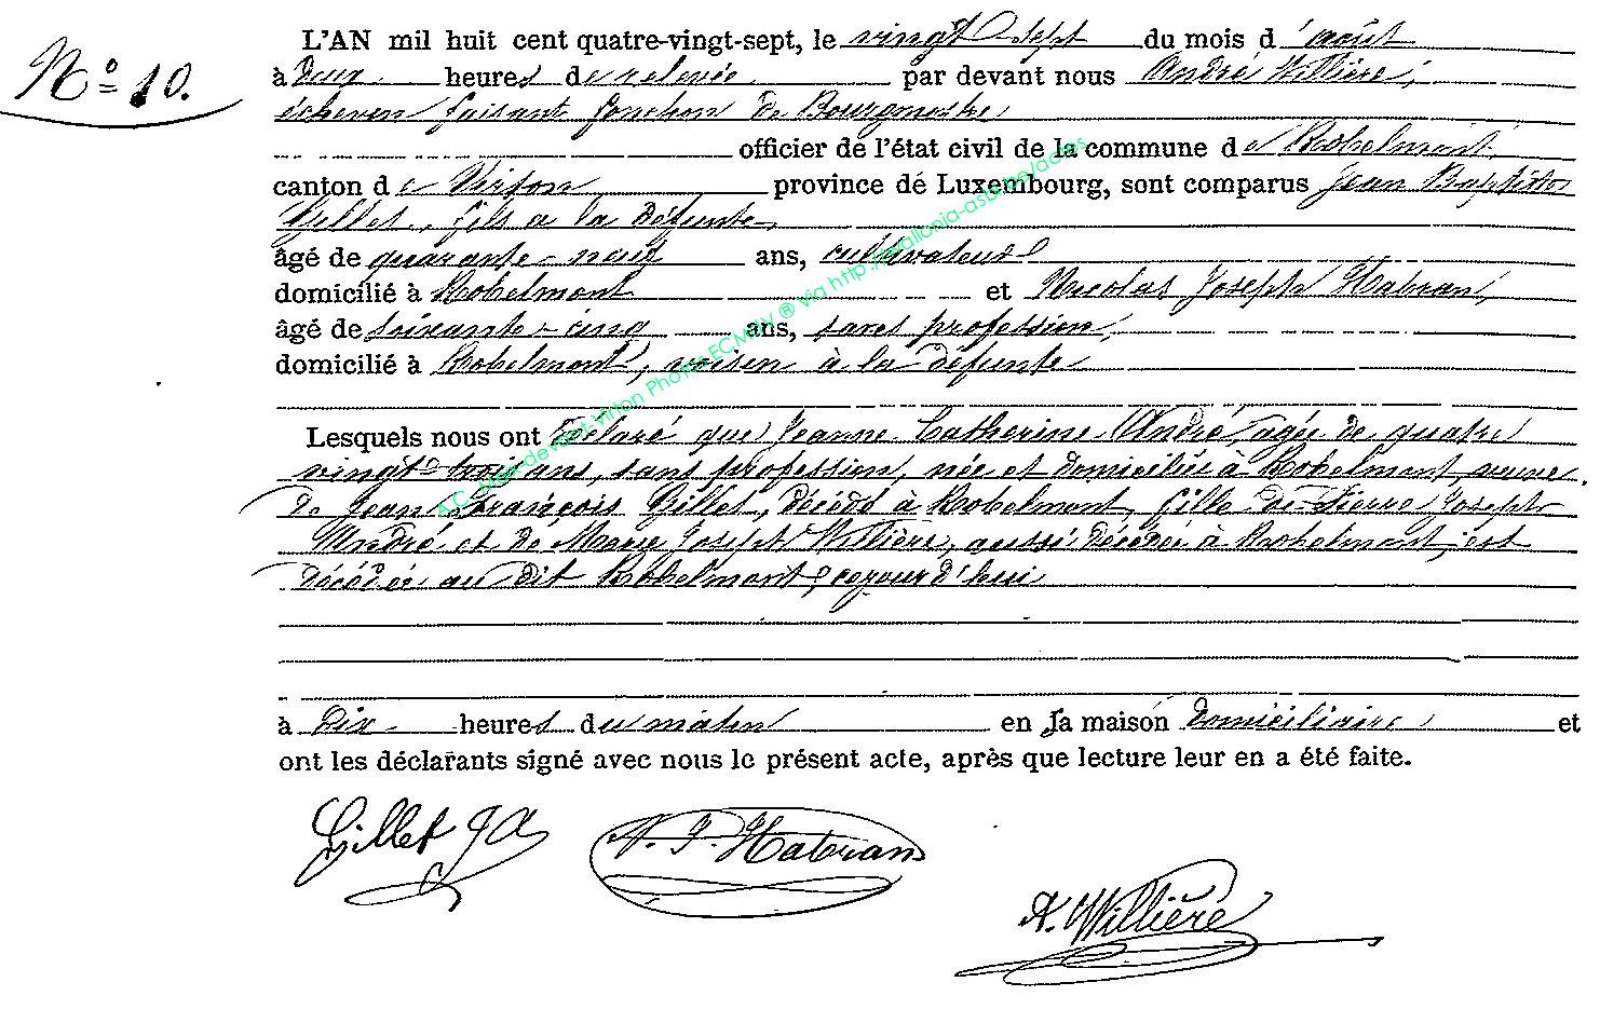 N° 10.
L'AN mil huit cent quatre-vingt-sept, le vingt sept du mois d'août
à deux heures de relevée par devant nous André Willière,
échevin faisant fonction de Bourgmestre
officier de l'état civil de la commune de Robelmont
canton de Virton province de Luxembourg, sont comparus Jean Baptiste
Gillet, fils a la défunte,
âgé de quarante-neuf ans, cultivateur
domicilié à Robelmont et Nicolas Joseph Habran,
âgé de soixante-cinq ans, sans profession,
domicilié à Robelmont, voisin à la défunte
Lesquels nous ont déclaré que Jeanne Catherine André, agée de quatre
vingt trois ans, sans profession, née et domiciliée à Robelmont, veuve
de Jean François Gillet, décédé à Robelmont, fille de Pierre Joseph
André et de Marie Joseph Willière, aussi décédée à Robelmont, est
décédée au dit Robelmont, cejourd'hui
à dix heures du matin en sa maison domiciliaire et
ont les déclarants signé avec nous le présent acte, après que lecture leur en a été faite.
Gillet J B
N. J. Habran
A. Willière
A.C. Meix-devant-Virton Photos ECMDV ® via http://wallonia-asbl.be/actes